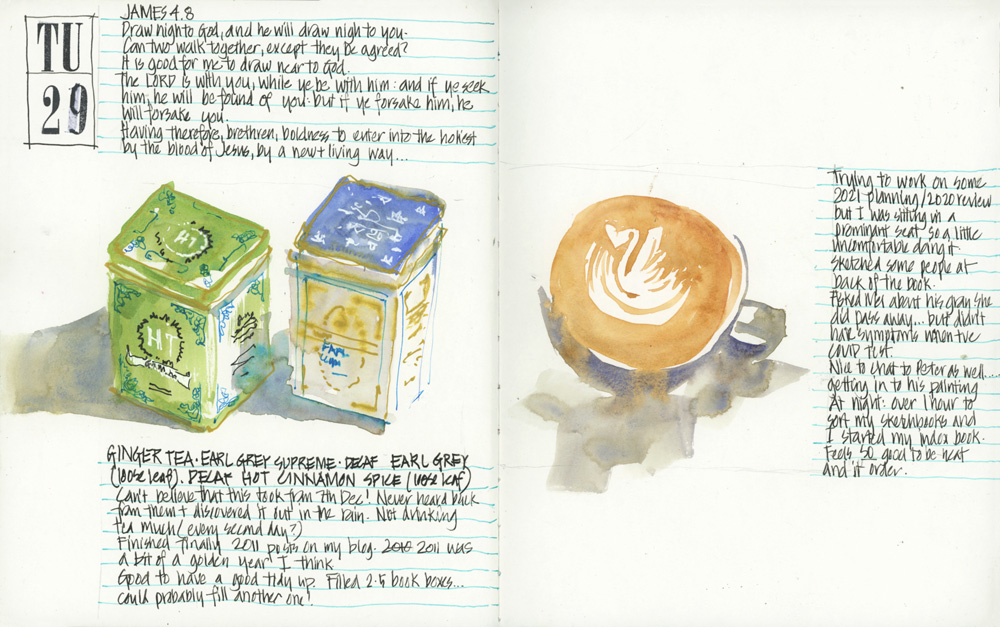 TU
29
JAMES 4.8
Draw nigh to God, and he will draw nigh to you.
Can two walk together, except they be agreed?
It is good for me to draw near to God.
The LORD is with you, while ye be with him: and if ye seek
him, he will be found of you: but if ye forsake him, he
will forsake you.
Having therefore, brethren, boldness to enter into the holiest
by the blood of Jesus, by a new + living way...
HT
HT
GINGER TEA. EARL GREY SUPREME. DECAF EARL GREY
(loose leaf). DECAF HOT CINNAMON SPICE (loose leaf)
Can't believe that this took from 7th Dec! Never heard back
from them + discovered it out in the rain. Not drinking
tea much (every second day?)
Finished finally 2011 posts on my blog. 2010 2011 was
a bit of a golden year I think.
Good to have a good tidy up. Filled 2.5 book boxes...
could probably fill another one!
Trying to work on some
2021 planning/2020 review
but I was sitting in a
prominant seat so a little
uncomfortable doing it.
Sketched some people at
back of the book.
Asked about his gran she
did pass away... but didn't
have symptoms when +ve
COVID TEST.
Nice to chat to Peter as well....
getting in to his painting
At night: over 1 hour to
sort my sketchbooks and
I started my index book.
Feels SO good to be neat
and in order.